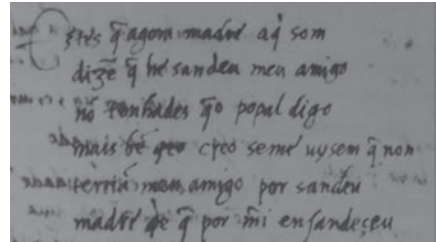 Estes q̃ agora madre aq̃ som
dizẽ q̃ he sandeu meu amigo
nõ tenhades q̃o popal digo
mais bẽ creo se me uyssem q̃ non
terriã meu amigo por sandeu
madre q̃ por mĩ ensandeçeu